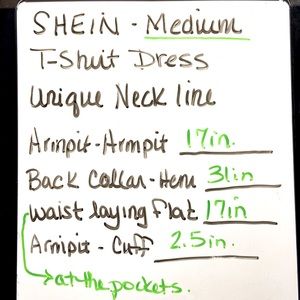 SHEIN - Medium
T-Shirt Dress
Unique Neck line
Armpit - Armpit 17in.
Back Collar - Hem 31in
waist laying flat 17in
Armpit - Cuff 2.5in.
at the pockets.